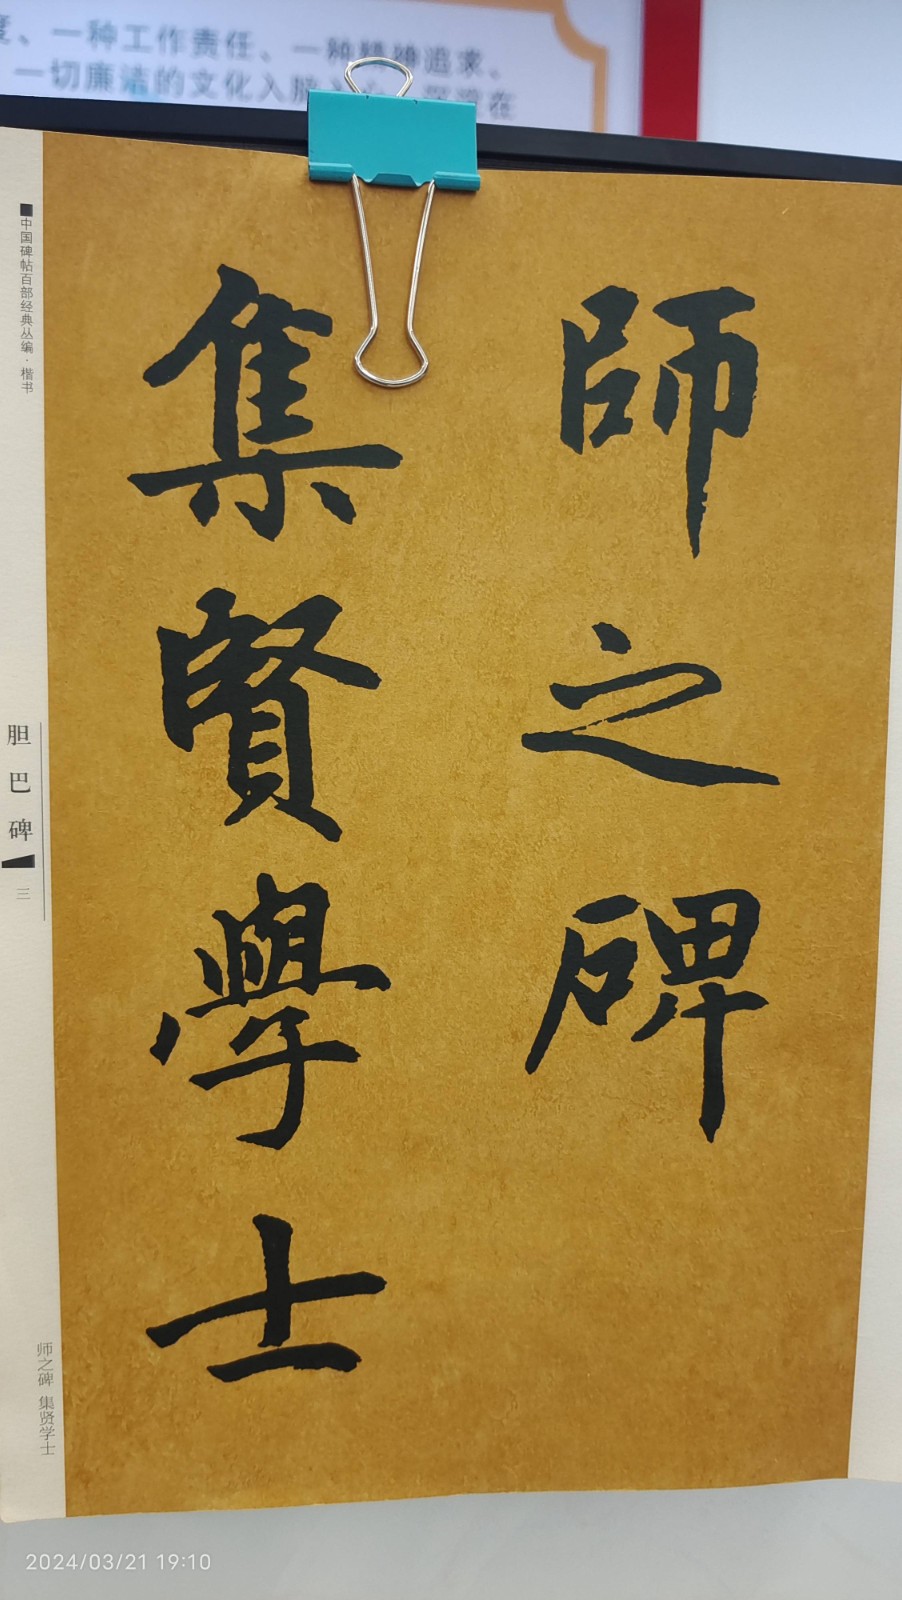 度、一种工作责任、一种精神追求、
一切廉洁的文化入脑
在
師之碑
集賢學士
■中国碑帖百部经典丛编·楷书
胆巴碑
三
师之碑 集贤学士
2024/03/21 19:10